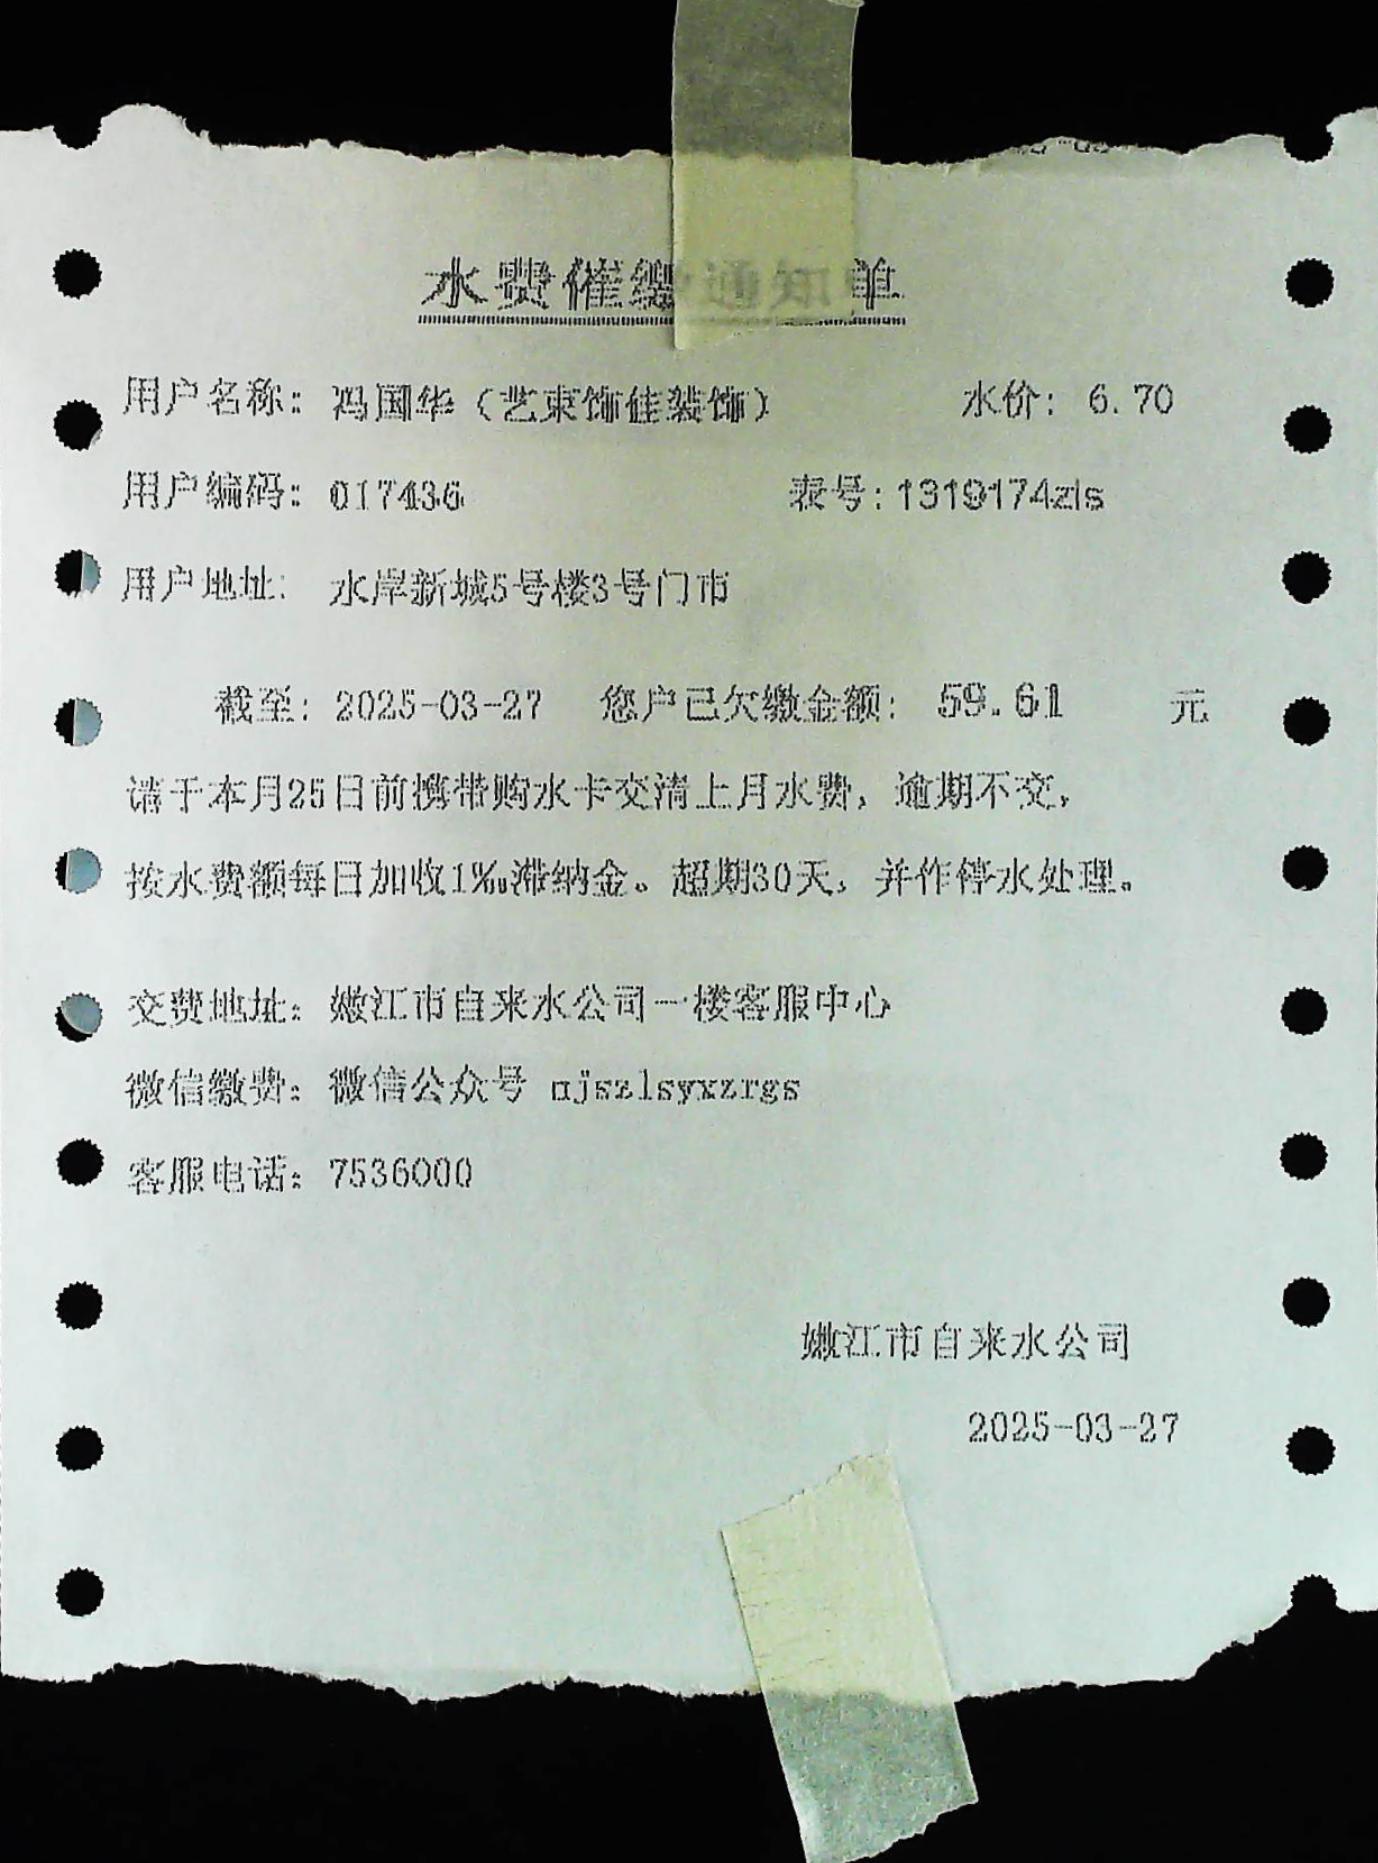 水费催缴费通知单
用户名称：冯国华（艺束饰佳装饰） 水价：6.70
用户编码：017436 表号：1319174zls
用户地址： 水岸新城5号楼3号门市
截至：2025-03-27 您户已欠缴金额：59.61 元
请于本月25日前携带购水卡交清上月水费，逾期不交，
按水费额每日加收1‰滞纳金。超期30天，并作停水处理。
交费地址：嫩江市自来水公司一楼客服中心
微信缴费：微信公众号 njszlsyxzrgs
客服电话：7536000
嫩江市自来水公司
2025-03-27